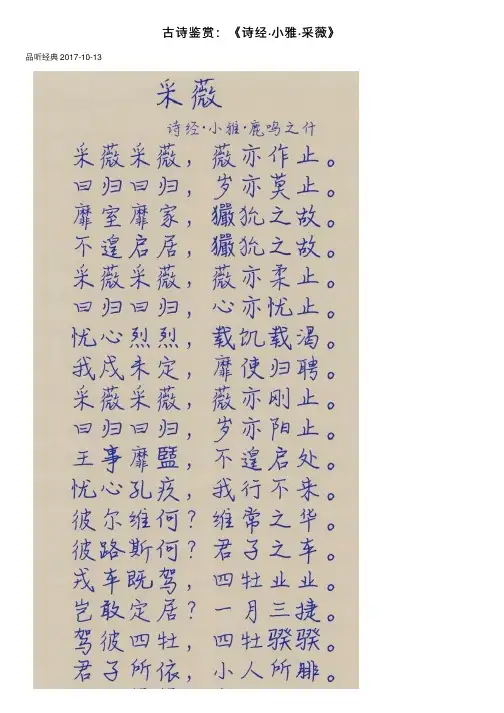 古诗鉴赏：《诗经·小雅·采薇》
品听经典 2017-10-13
采薇
诗经·小雅·鹿鸣之什
采薇采薇，薇亦作止。
曰归曰归，岁亦莫止。
靡室靡家，玁狁之故。
不遑启居，玁狁之故。
采薇采薇，薇亦柔止。
曰归曰归，心亦忧止。
忧心烈烈，载饥载渴。
我戍未定，靡使归聘。
采薇采薇，薇亦刚止。
曰归曰归，岁亦阳止。
王事靡盬，不遑启处。
忧心孔疚，我行不来。
彼尔维何？维常之华。
彼路斯何？君子之车。
戎车既驾，四牡业业。
岂敢定居？一月三捷。
驾彼四牡，四牡骙骙。
君子所依，小人所腓。